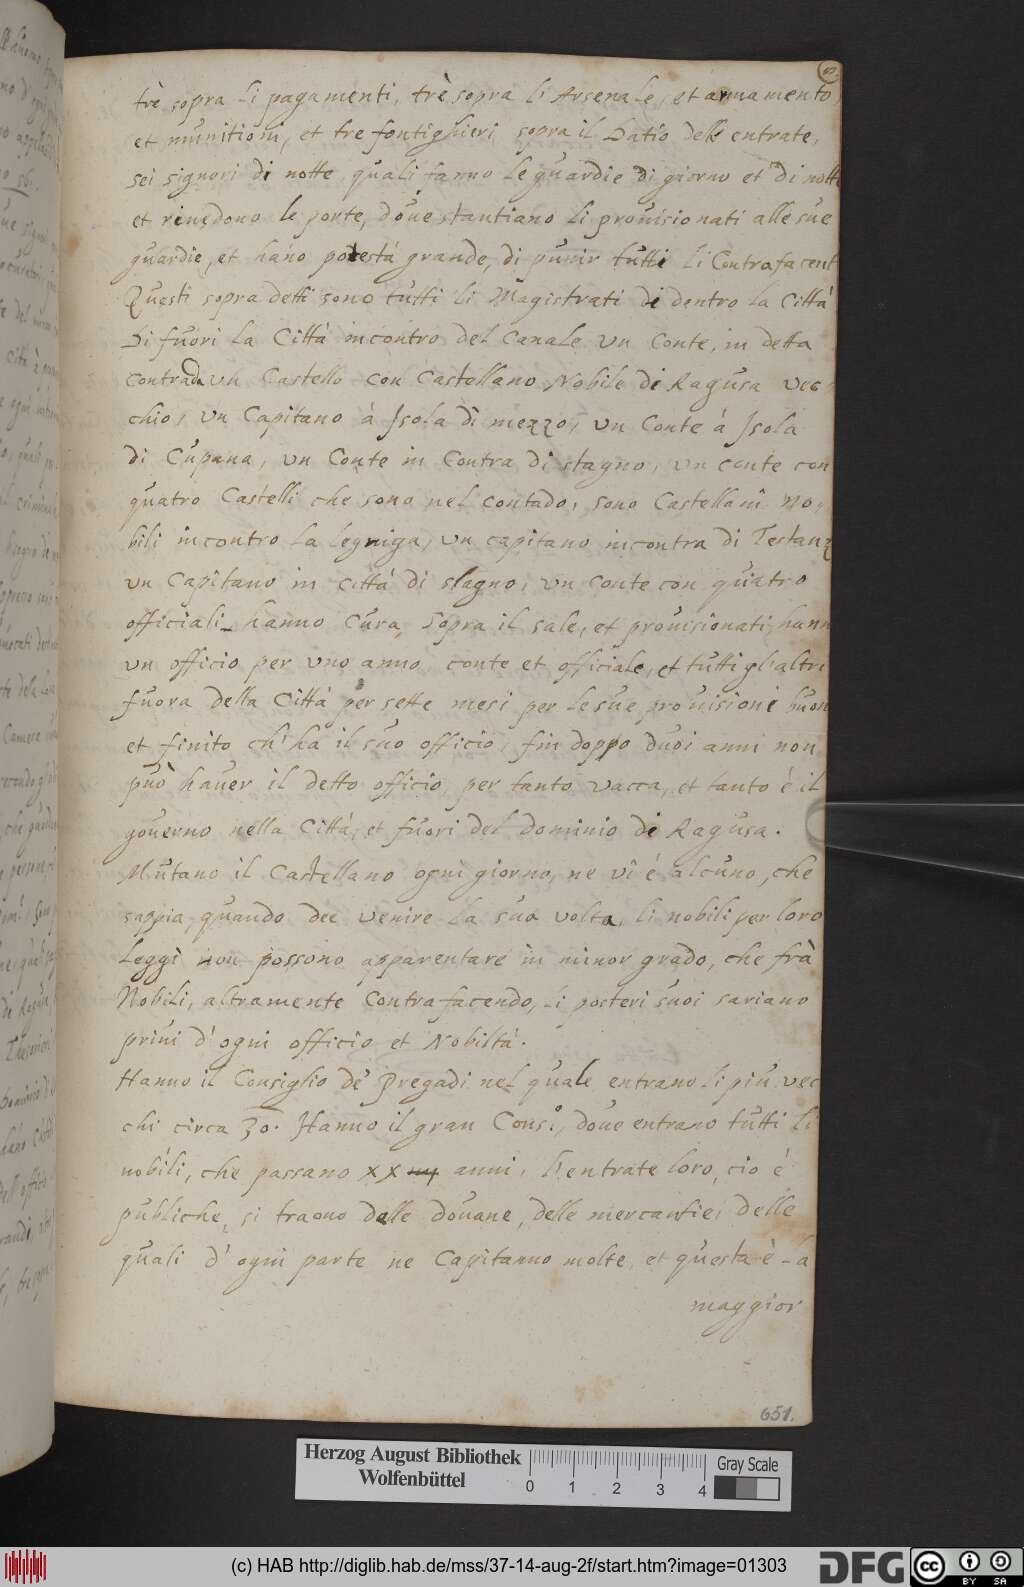 trè sopra li pagamenti, trè sopra l'Arsenale, et armamento
et munitioni, et tre fontighieri sopra il Datio delle entrate,
sei signori di notte quali fanno le guardie di giorno et di notte
et rivedono le porte, doue stantiano li prouisionati alle sue
guardie, et hāno potestà grande, di punir tutti li Contrafacent
Questi sopra detti sono tutti li Magistrati di dentro la Città
Di fuori la Città incontro del Canale un Conte, in detta
contrada un Castello con Castellano Nobile di Ragusa vec
chio, un Capitano à Isola di mezzo, un Conte á Isola
di Cupana, un Conte in Contra di stagno, un conte con
quatro Castelli che sono nel contado, sono Castellani No,
bili incontro la legniga, un capitano incontra di Testanz
un Capitano in città di stagno, un conte con quatro
officiali hanno Cura, sopra il sale, et prouisionati, hann
un officio per uno anno, conte et officiale, et tutti gl'altri
fuora della Città per sette mesi per le sue prouisioni buon
et finito ch'ha il suo officio, fin doppo duoi anni non
può hauer il detto officio, per tanto vacca, et tanto è il
gouerno nella Città, et fuori del dominio di Ragusa.
Mutano il Castellano ogni giorno, ne vi é alcuno, che
sappia, quando dee venire la sua volta, li nobili per loro
Leggi non possono apparentare in minor grado, che frà
Nobili, altramente Contrafacendo, li posteri suoi sariano
priui d'ogni officio et Nobiltà.
Hanno il Consiglio de Pregadi nel quale entrano li più vec
chi circa 30. Hanno il gran Cons:º, doue entrano tutti li
nobili, che passano XX anni, l'entrate loro, cio é
publiche, si traono dalle douane, delle mercantie, delle
quali d'ogni parte ne Capitanno molte, et questa è la
maggior
651.
Herzog August Bibliothek
Wolfenbüttel
0 1 2 3 4
Gray Scale
(c) HAB http://diglib.hab.de/mss/37-14-aug-2f/start.htm?image=01303
DFG
cc
BY SA